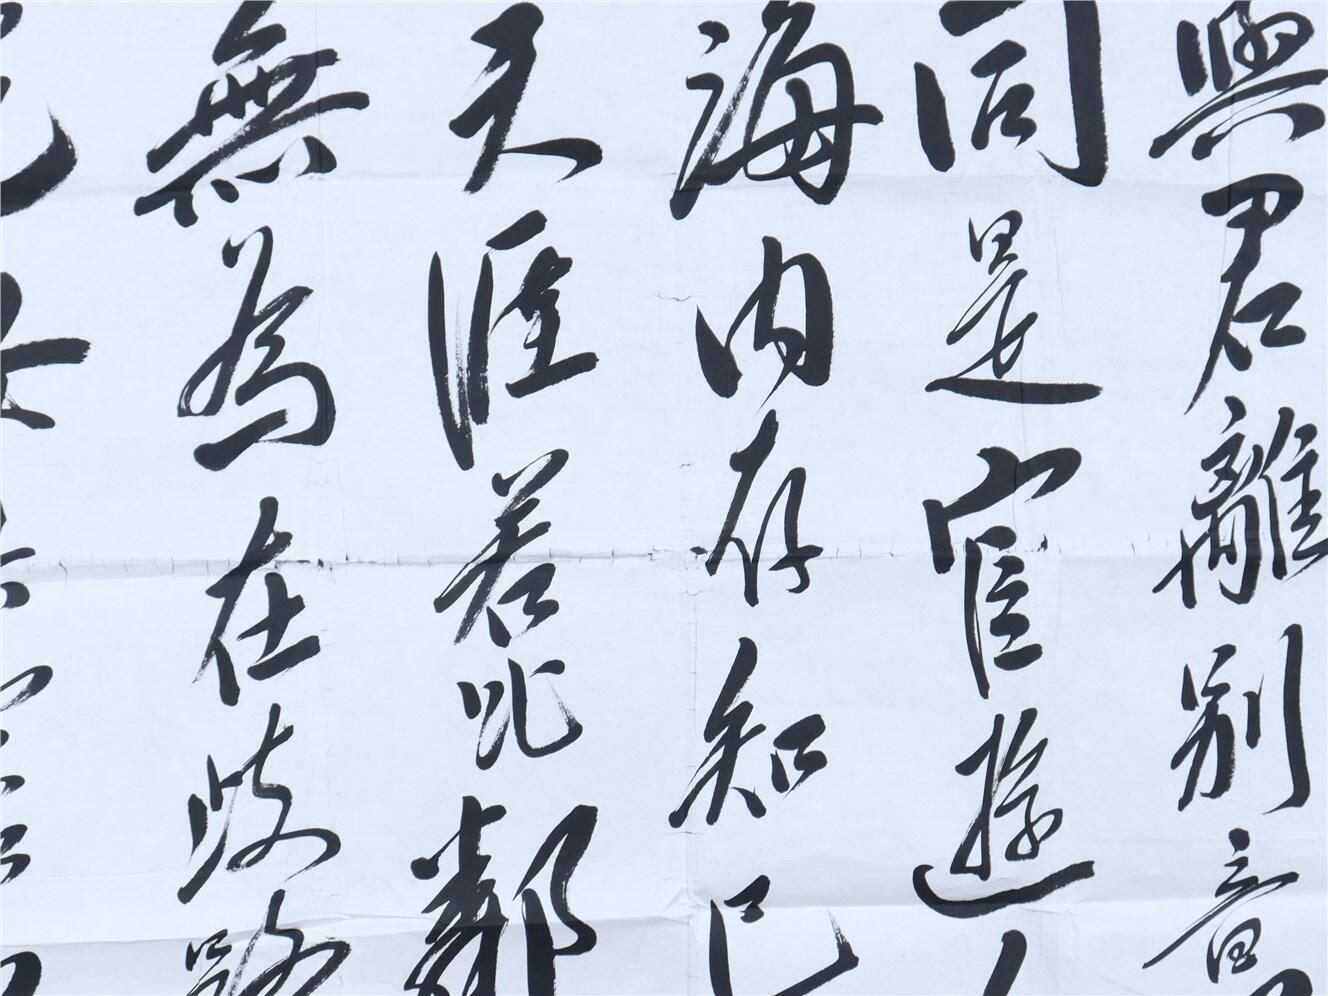 與君離別意
同是宦遊人
海内存知己
天涯若比鄰
無為在歧路